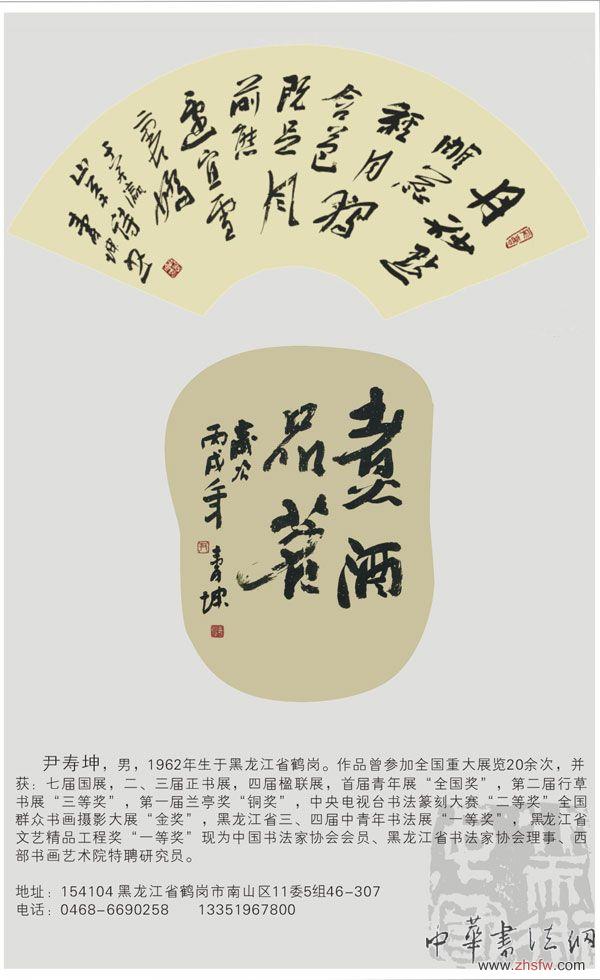 丹砂點
雕蕊
經月獨
含苞
既足風
前態
還宜雪
裏嬌
于若瀛詩
山茶 壽坤
煮酒
品茗
歲次
丙戌年 壽坤
尹寿坤，男，1962年生于黑龙江省鹤岗。作品曾参加全国重大展览20余次，并
获：七届国展，二、三届正书展，四届楹联展，首届青年展“全国奖”，第二届行草
书展“三等奖”，第一届兰亭奖“铜奖”，中央电视台书法篆刻大赛“二等奖”全国
群众书画摄影大展“金奖”，黑龙江省三、四届中青年书法展“一等奖”，黑龙江省
文艺精品工程奖“一等奖”现为中国书法家协会会员、黑龙江省书法家协会理事、西
部书画艺术院特聘研究员。
地址：154104 黑龙江省鹤岗市南山区11委5组46-307
电话：0468-6690258 13351967800
中華書法網
www.zhsfw.com